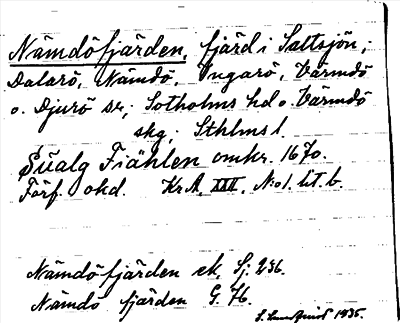 Nämdöfjärden, fjärd i Saltsjön;
Dalarö, Nämdö, Ingarö, Värmdö
o. Djurö sn; Sotholms hd o. Värmdö
skg; Sthlms l.
Süalg Fiählen omkr. 1670.
Förf. okd. Kr A, XIII, N:o 1. lit. b.
Nämdöfjärden ek, Sj. 236.
Nämdö fjärden G. 76.
1935.